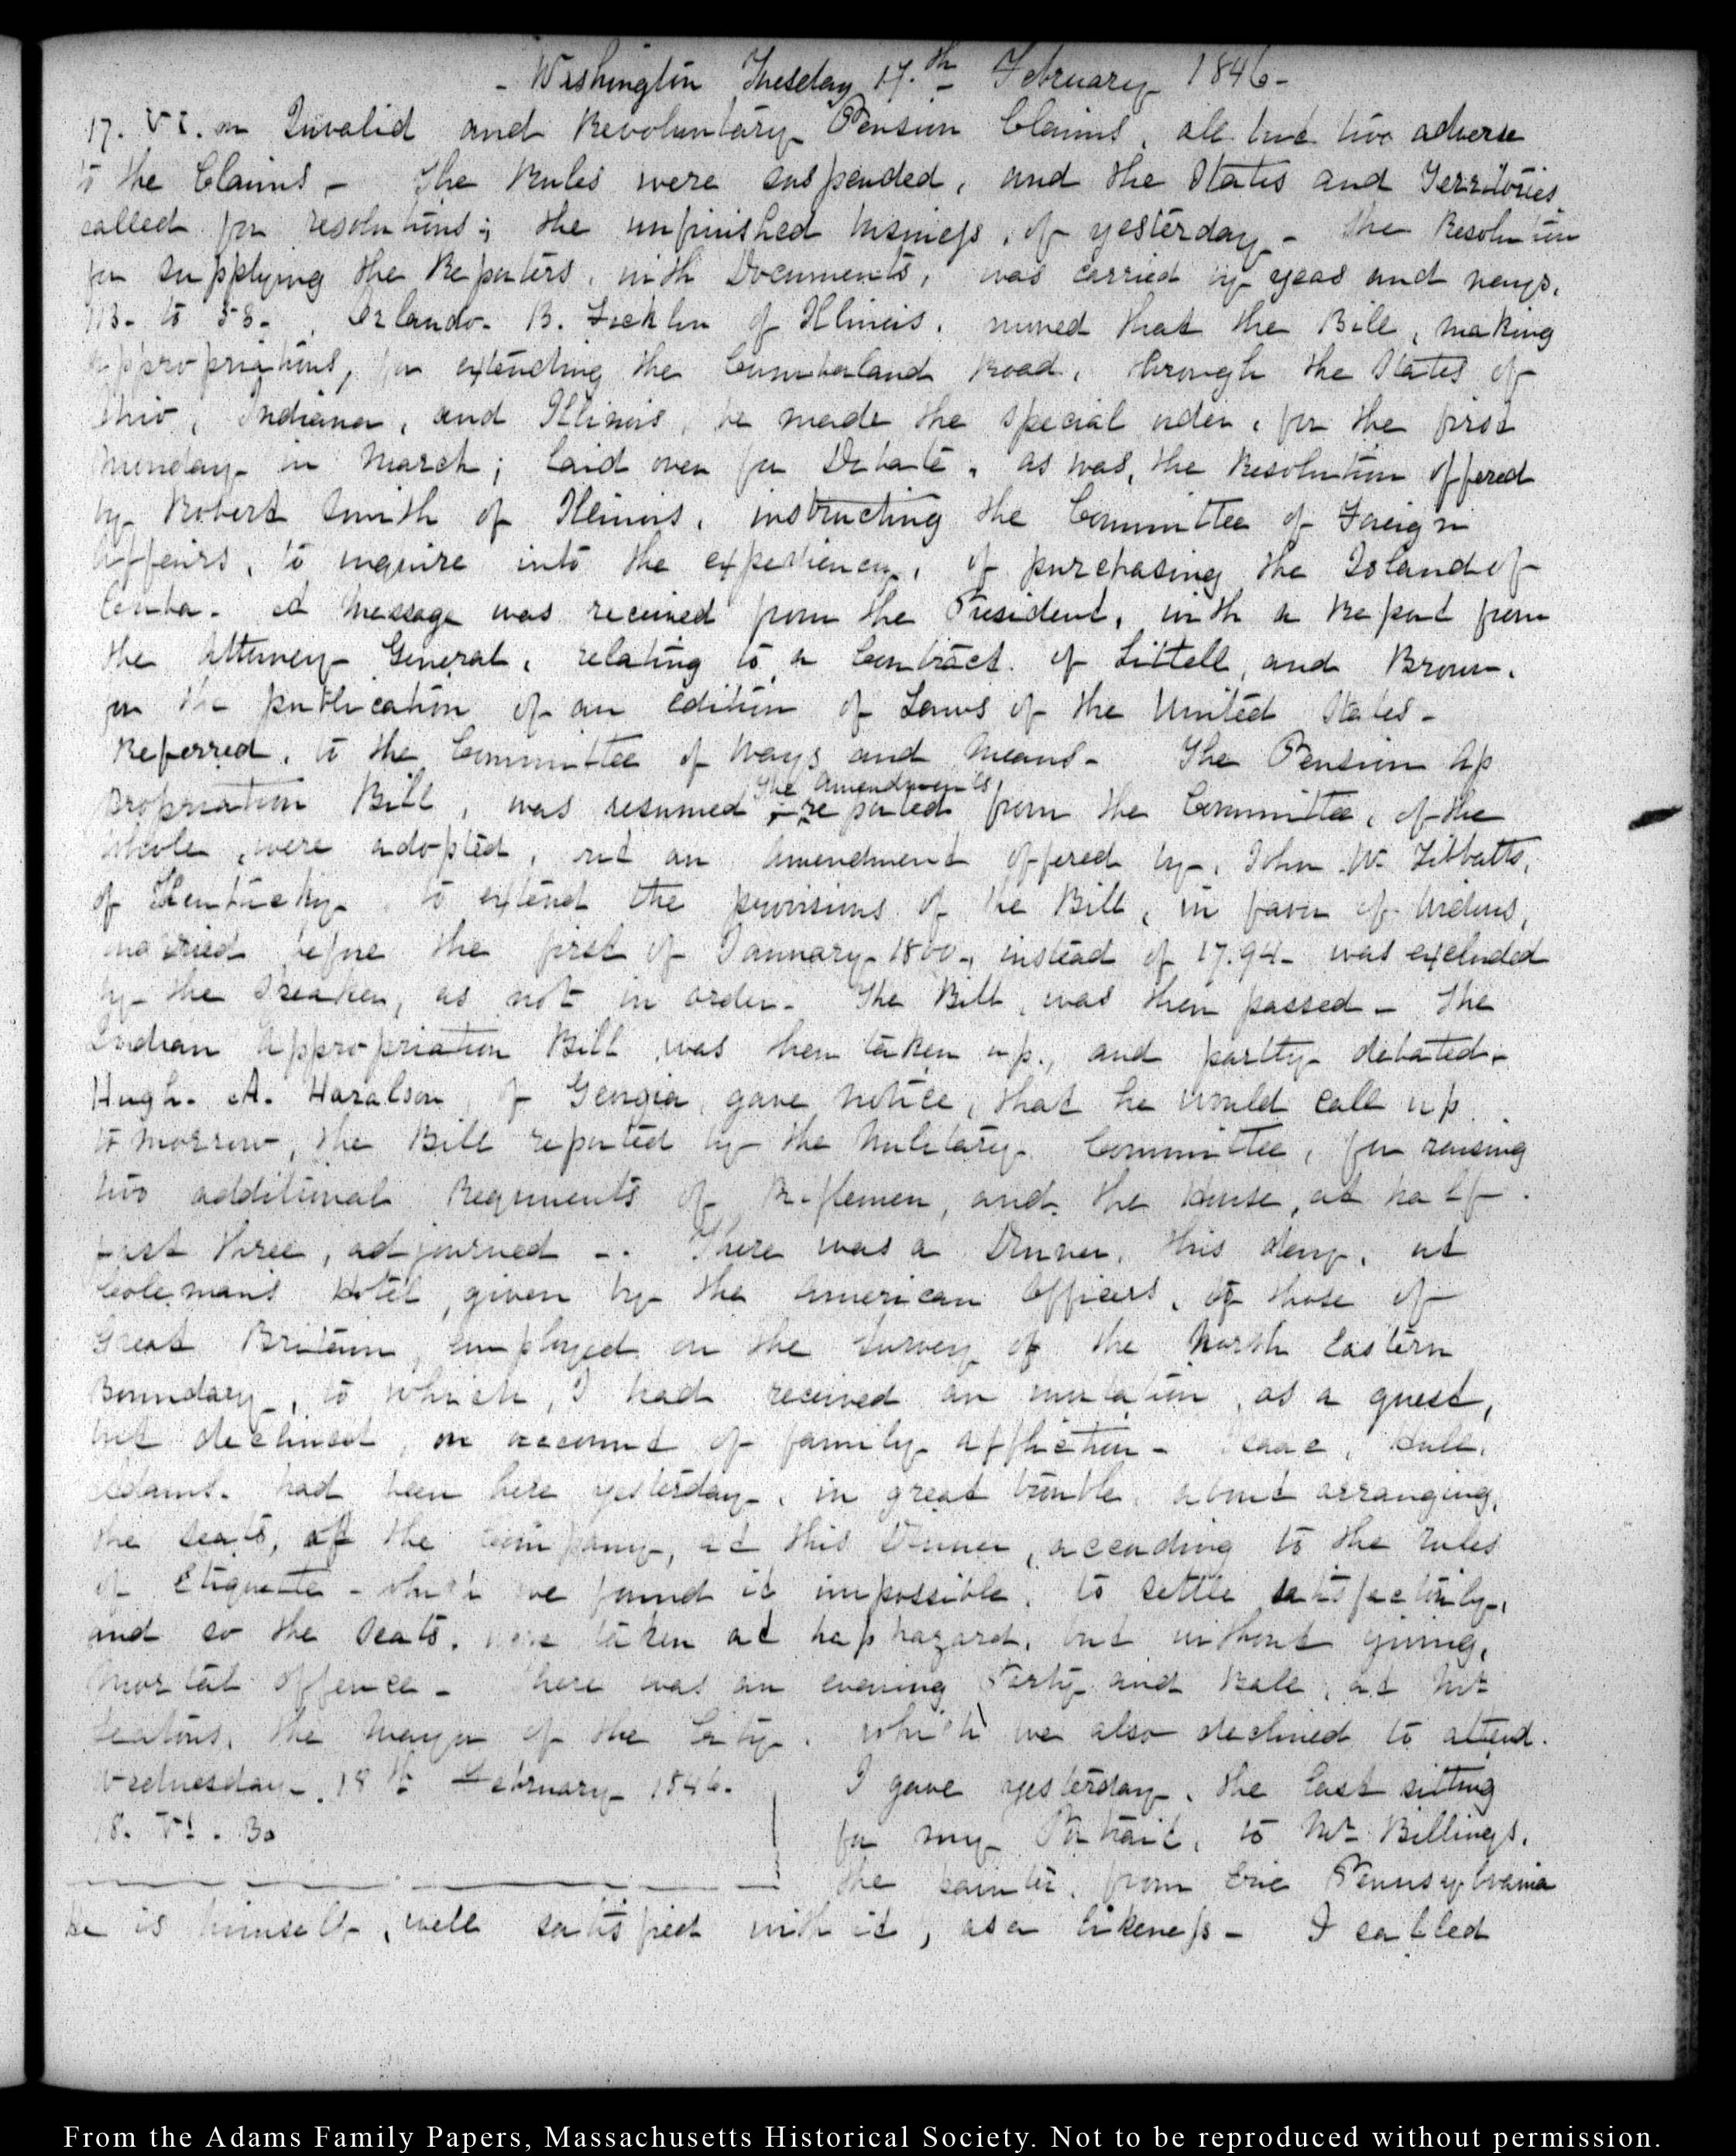 - Washington Tuesday 17.th February 1846-
17. VI. on Invalid and Revolutionary Pension Claims, all but two adverse
to the Claims - The Rules were suspended, and the States and Territories
called for resolutions; the unfinished business, of yesterday - the Resolution
for supplying the Reporters, with Documents, was carried by yeas and nays.
113- to 58-. Orlando. B. Ficklin of Illinois. moved that the Bill, making
appropriations, for extending the Cumberland Road, through the States of
Ohio, Indiana, and Illinois, be made the special order, for the first
Monday in March; laid over for Debate, as was, the Resolution offered
by Robert Smith of Illinois, instructing the Committee of Foreign
Affairs, to inquire into the expediency, of purchasing the Island of
Cuba. A Message was received from the President, with a Report from
the Attorney General, relating to a Contract of Littell, and Brown.
for the publication of an Edition of Laws of the United States-
Referred, to the Committee of Ways and Means- The Pension Ap
propriation Bill, was resumed - The Amendments reported from the Committee, of the
whole, were adopted, and an amendment offered by, John W. Tibbatts,
of Kentucky to extend the provisions of the Bill, in favor of Widows,
married before the first of January 1800, instead of 17.94- was excluded
by the Speaker, as not in order. The Bill, was then passed - The
Indian Appropriation Bill was then taken up, and partly debated-
Hugh. A. Haralson, of Georgia, gave notice, that he would call up
to morrow, the Bill reported by the Military Committee, for raising
two additional Regiments of Riflemen, and the House, at half
past three, adjourned -. There was a Dinner, this day, at
Colemans Hotel, given by the American Officers, to those of
Great Britain, employed on the Survey of the North Eastern
Boundary, to which, I had received an invitation, as a guest,
but declined, on account of family affliction- Isaac, Hull.
Adams. had been here yesterday, in great trouble, about arranging,
the seats, of the Company, at this Dinner, according to the rules
of Etiquette - which we found it impossible, to settle satisfactorily,
and so the Seats, were taken at haphazard, but without giving,
mortal offence - There was an evening Party and Ball, at Mr
Seatons, the Mayor of the City. which we also declined to attend.
Wednesday 18th February 1846.
18. VI. 30
I gave yesterday, the last sitting
for my Portrait, to Mr Billings,
the painter, from Erie Pennsylvania
he is himself, well satisfied with it, as a likeness- I called
From the Adams Family Papers, Massachusetts Historical Society. Not to be reproduced without permission.